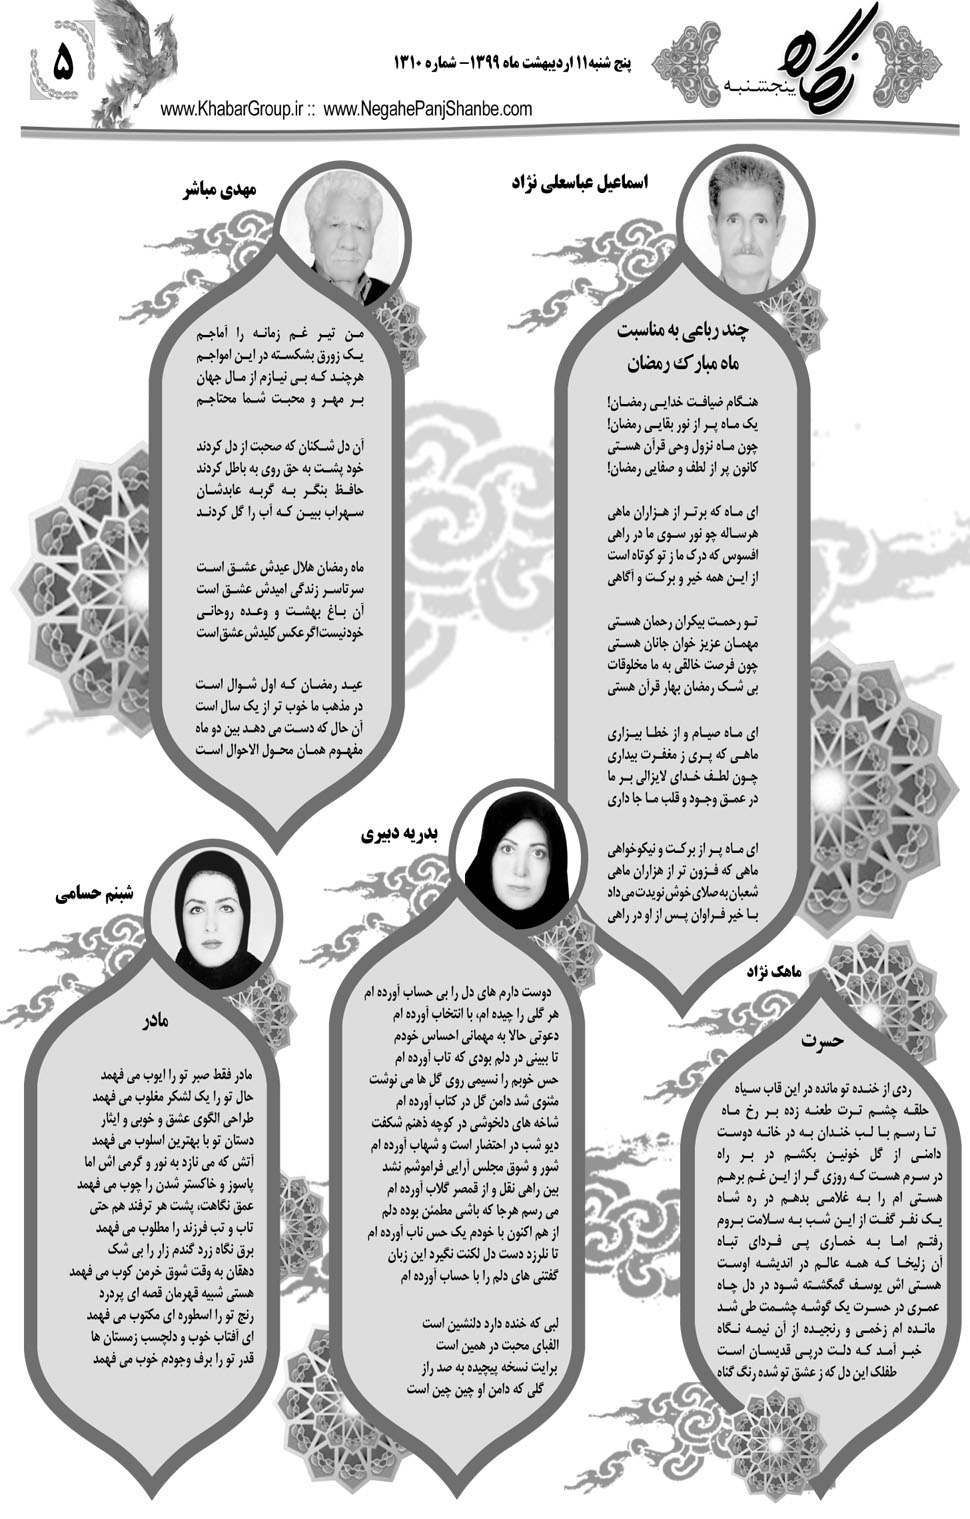 نگاه
پنجشنبه
پنج شنبه ۱۱ اردیبهشت ماه ۱۳۹۹- شماره ۱۳۱۰
۵
www.KhabarGroup.ir :: www.NegahePanjShanbe.com
اسماعیل عباسعلی نژاد
چند رباعی به مناسبت
ماه مبارک رمضان
هنگام ضیافت خدایی رمضان!
یک ماه پر از نور بقایی رمضان!
چون ماه نزول وحی قرآن هستی
کانون پر از لطف و صفایی رمضان!
ای ماه که برتر از هزاران ماهی
هرساله چو نور سوی ما در راهی
افسوس که درک ما ز تو کوتاه است
از این همه خیر و برکت و آگاهی
تو رحمت بیکران رحمان هستی
مهمان عزیز خوان جانان هستی
چون فرصت خالقی به ما مخلوقات
بی شک رمضان بهار قرآن هستی
ای ماه صیام و از خطا بیزاری
ماهی که پری ز مغفرت بیداری
چون لطف خدای لایزالی بر ما
در عمق وجود و قلب ما جا داری
ای ماه پر از برکت و نیکوخواهی
ماهی که فزون تر از هزاران ماهی
شعبان به صلای خوش نویدت می داد
با خیر فراوان پس از او در راهی
مهدی مباشر
من تیر غم زمانه را آماجم
یک زورق بشکسته در این امواجم
هرچند که بی نیازم از مال جهان
بر مهر و محبت شما محتاجم
آن دل شکنان که صحبت از دل کردند
خود پشت به حق روی به باطل کردند
حافظ بنگر به گربه عابدشان
سهراب ببین که آب را گل کردند
ماه رمضان هلال عیدش عشق است
سرتاسر زندگی امیدش عشق است
آن باغ بهشت و وعده روحانی
خودنیست اگر عکس کلیدش عشق است
عید رمضان که اول شوال است
در مذهب ما خوب تر از یک سال است
آن حال که دست می دهد بین دو ماه
مفهوم همان محول الاحوال است
بدریه دبیری
دوست دارم های دل را بی حساب آورده ام
هر گلی را چیده ام، با انتخاب آورده ام
دعوتی حالا به مهمانی احساس خودم
تا ببینی در دلم بودی که تاب آورده ام
حس خوبم را نسیمی روی گل ها می نوشت
مثنوی شد دامن گل در کتاب آورده ام
شاخه های دلخوشی در کوچه ذهنم شکفت
دیو شب در احتضار است و شهاب آورده ام
شور و شوق مجلس آرایی فراموشم نشد
بین راهی نقل و از قمصر گلاب آورده ام
می رسم هرجا که باشی مطمئن بوده دلم
از هم اکنون با خودم یک حس ناب آورده ام
تا نلرزد دست دل لکنت نگیرد این زبان
گفتنی های دلم را با حساب آورده ام
لبی که خنده دارد دلنشین است
الفبای محبت در همین است
برایت نسخه پیچیده به صد راز
گلی که دامن او چین چین است
شبنم حسامی
مادر
مادر فقط صبر تو را ایوب می فهمد
حال تو را یک لشکر مغلوب می فهمد
طراحی الگوی عشق و خوبی و ایثار
دستان تو با بهترین اسلوب می فهمد
آتش که می نازد به نور و گرمی اش اما
پاسوز و خاکستر شدن را چوب می فهمد
عمق نگاهت، پشت هر ترفند هم حتی
تاب و تب فرزند را مطلوب می فهمد
برق نگاه زرد گندم زار را بی شک
دهقان به وقت شوق خرمن کوب می فهمد
هستی شبیه قهرمان قصه ای پردرد
رنج تو را اسطوره ای مکتوب می فهمد
ای آفتاب خوب و دلچسب زمستان ها
قدر تو را برف وجودم خوب می فهمد
ماهک نژاد
حسرت
ردی از خنده تو مانده در این قاب سیاه
حلقه چشم ترت طعنه زده بر رخ ماه
تا رسم با لب خندان به در خانه دوست
دامنی از گل خونین بکشم در بر راه
در سرم هست که روزی گر از این غم برهم
هستی ام را به غلامی بدهم در ره شاه
یک نفر گفت از این شب به سلامت بروم
رفتم اما به خماری پی فردای تباه
آن زلیخا که همه عالم در اندیشه اوست
هستی اش یوسف گمگشته شود در دل چاه
عمری در حسرت یک گوشه چشمت طی شد
مانده ام زخمی و رنجیده از آن نیمه نگاه
خبر آمد که دلت درپی قدیسان است
طفلک این دل که ز عشق تو شده رنگ گناه